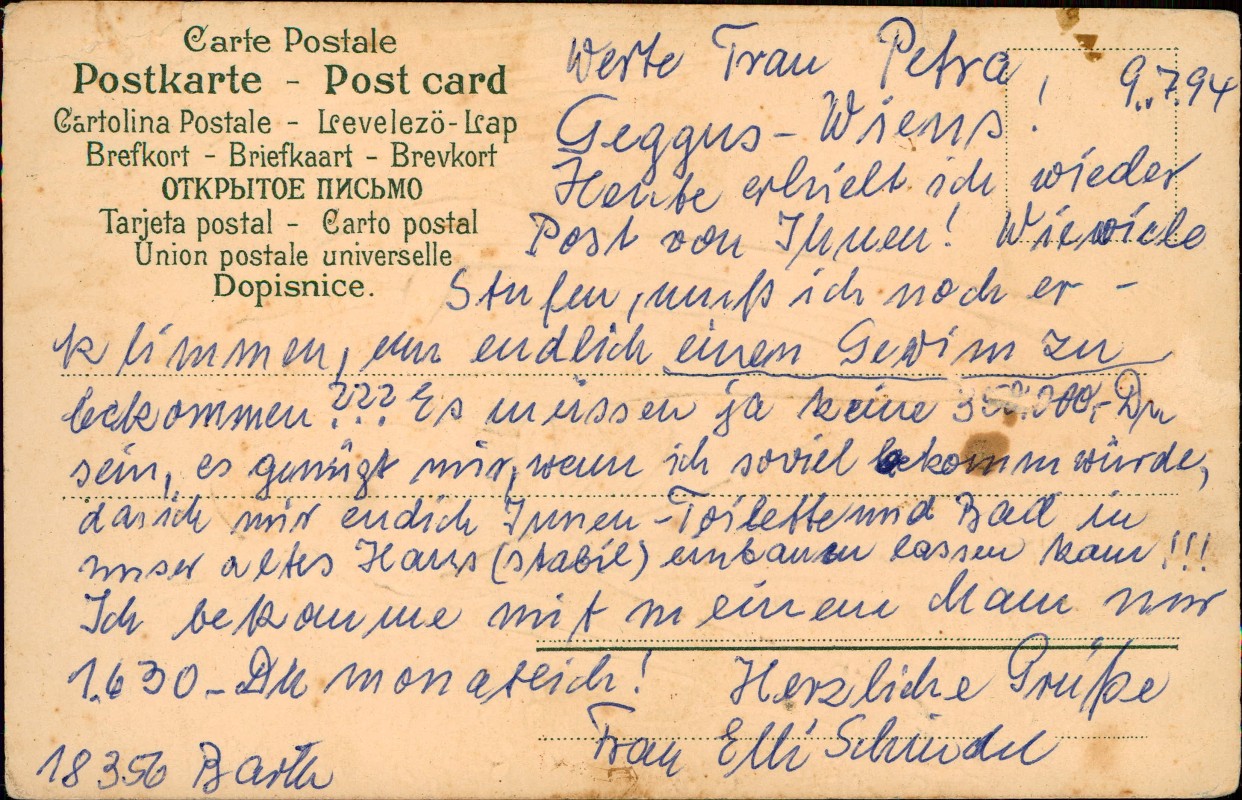 Carte Postale
Postkarte - Post card
Cartolina Postale - Levelezö-Lap
Brefkort - Briefkaart - Brevkort
ОТКРЫТОЕ ПИСЬМО
Tarjeta postal - Carto postal
Union postale universelle
Dopisnice.
9.7.94
Werte Frau Petra
Geggus-Wiens!
Heute erhielt ich wieder
Post von Ihnen! Wieviele
Stufen, muß ich noch er-
klimmen, um endlich einen Gewinn zu
bekommen??? Es müssen ja keine 350.000,- DM
sein, es genügt mir, wenn ich soviel bekomm würde,
das ich mir endich Innen-Toilette und Bad in
unser altes Haus (stabil) einbauen lassen kann!!!
Ich bekomme mit meinem Mann nur
1.630- DM monatlich! Herzliche Grüße
Frau Elli Schindel
18356 Barth